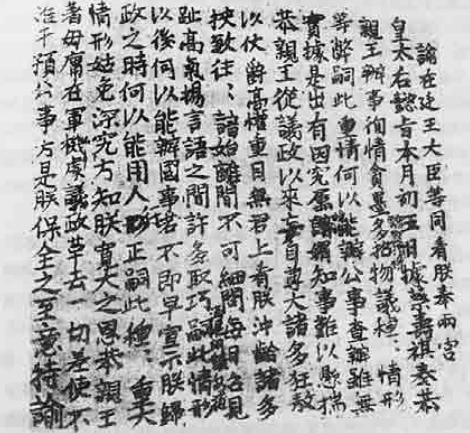 諭在廷王大臣等同看朕奉兩宮
皇太后懿旨本月初五日據蔡壽祺奏恭
親王辦事徇情貪墨多招物議種〻情形
等弊嗣此重情何以能辦公事查辦雖無
實據是出有因究屬曖昧知事難以懸揣
恭親王從議政以来妄自尊大諸多狂敖
以仗爵高權重目無君上看朕冲齡諸多
挾致往〻諳始離間不可細問每日召見
趾高氣揚言語之間許多取巧嗣此情形
以後何以能辦國事若不即早宣示朕歸
政之時何以能用人行正嗣此種〻重大
情形姑免深究方知朕寬大之恩恭親王
著毋庸在軍機處議政革去一切差使不
准干預公事方是朕保全之至意特諭